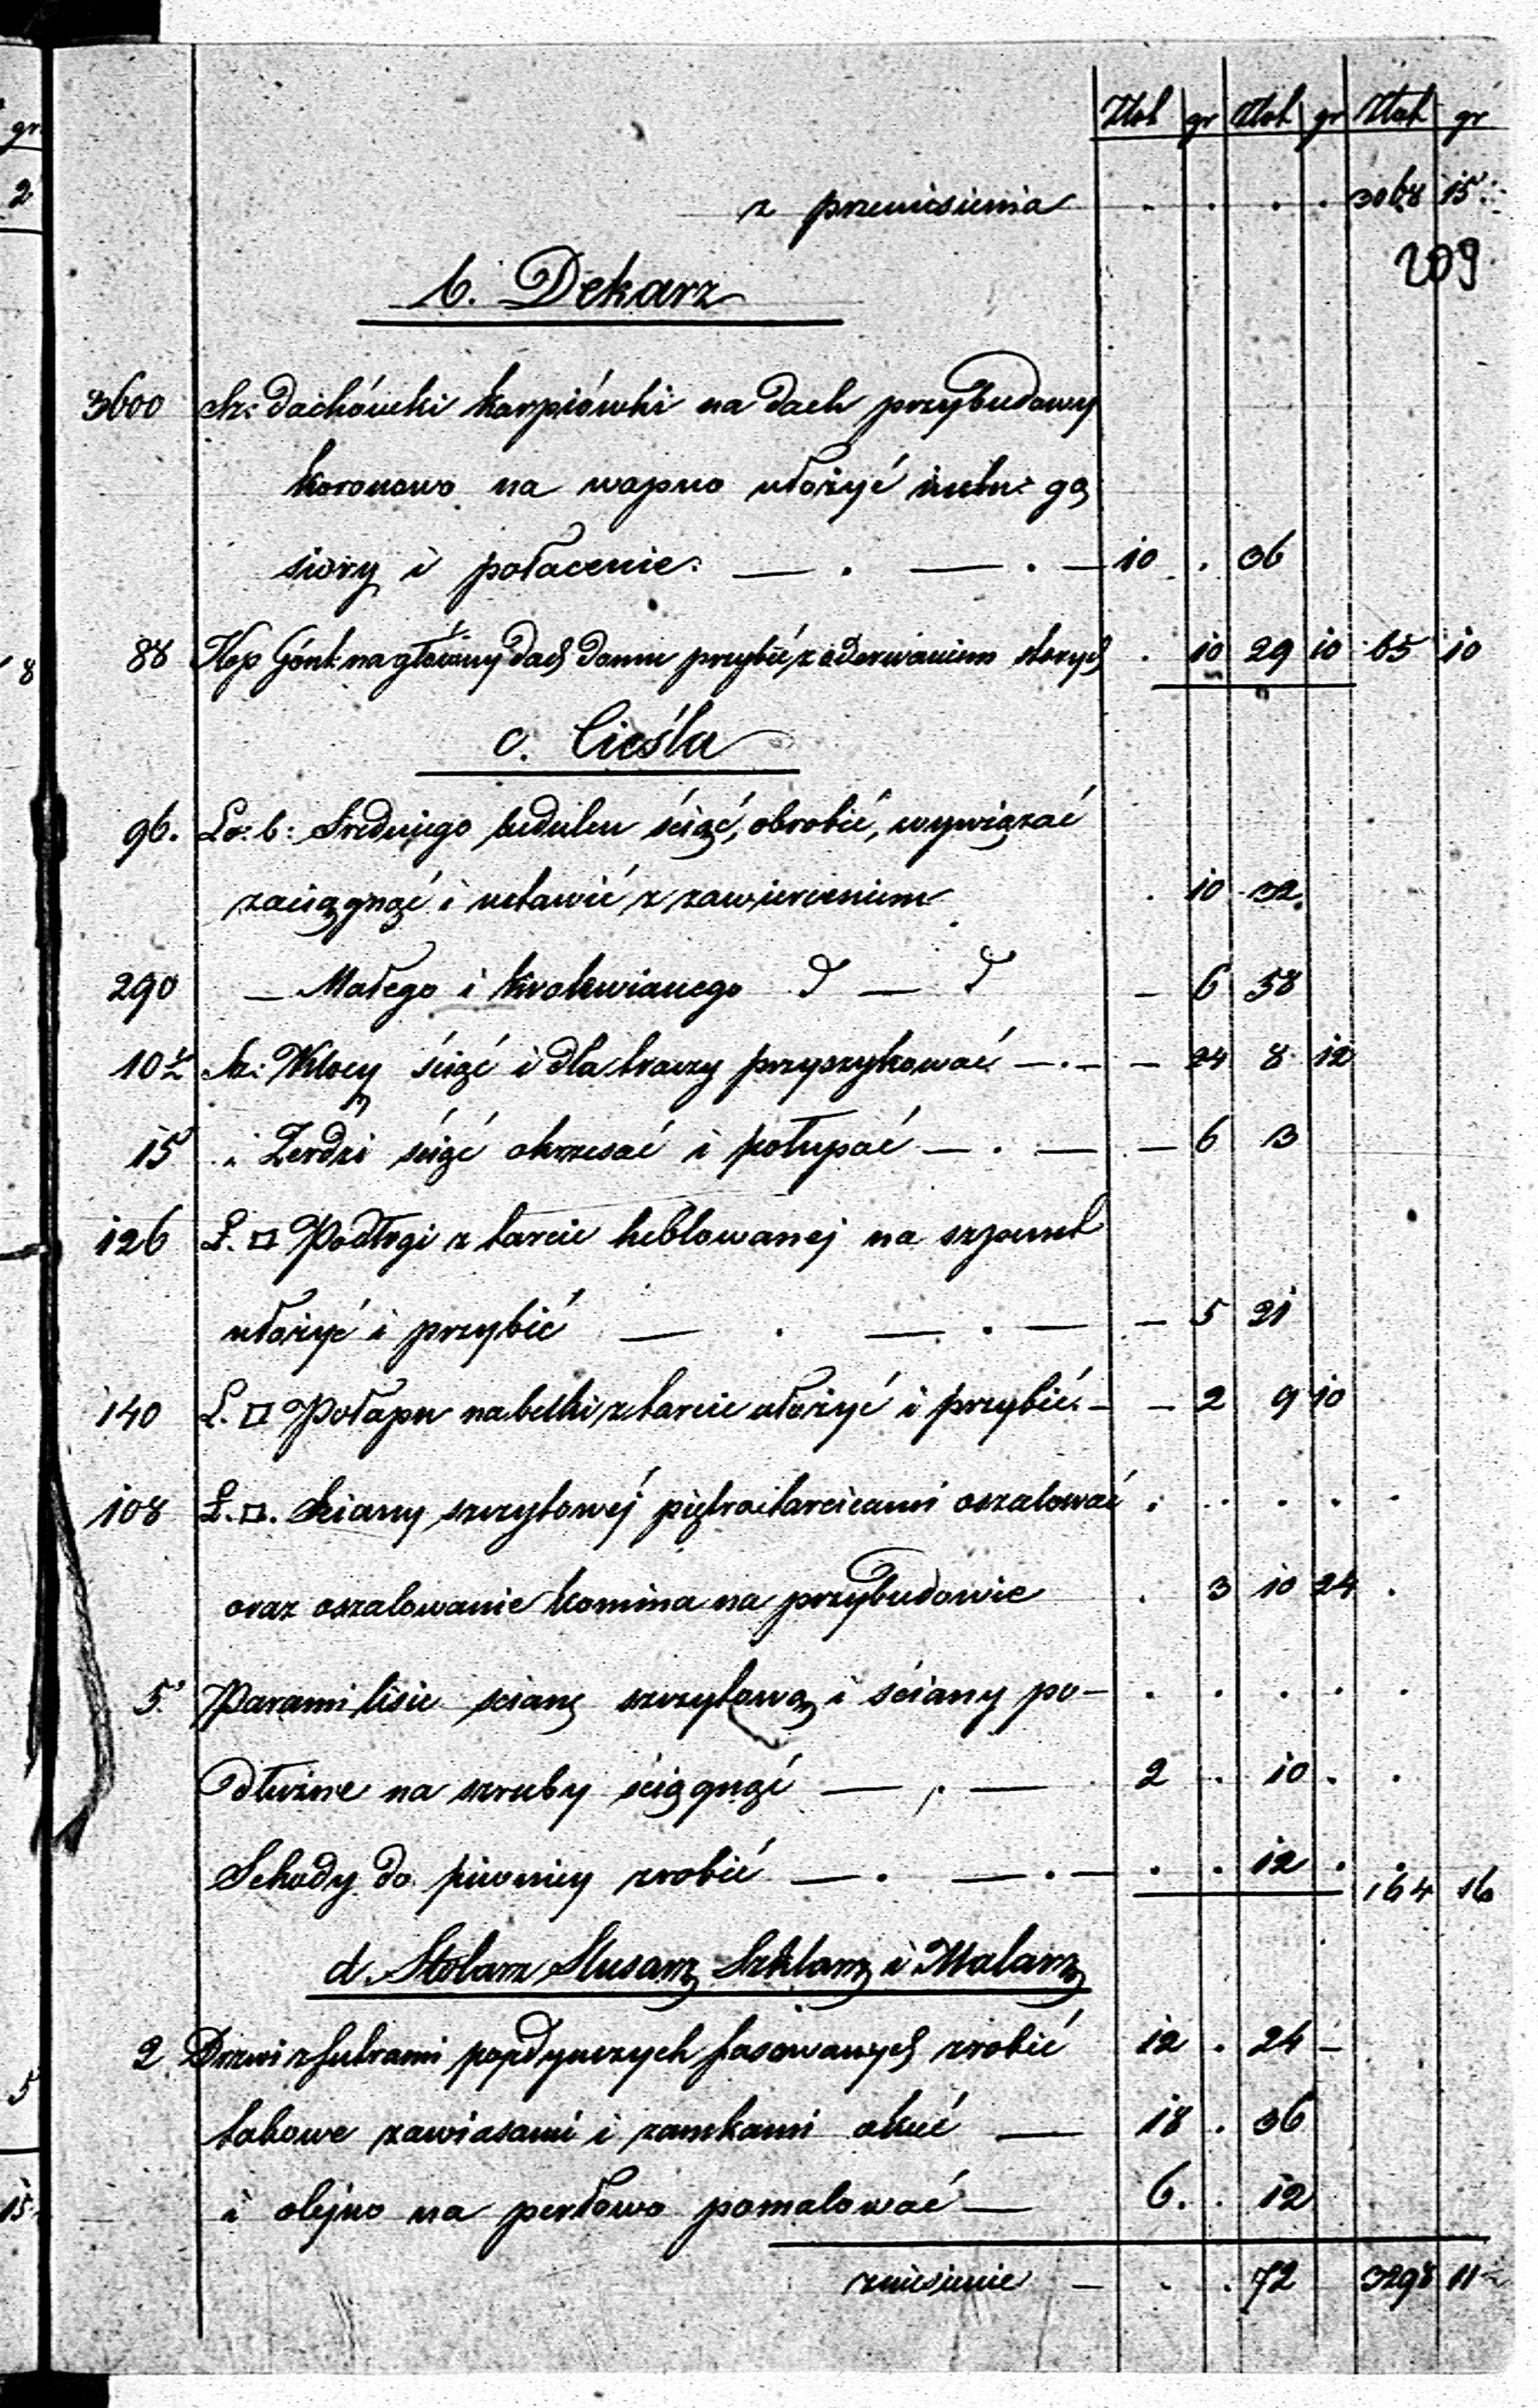 Złot gr Złot gr Złot gr
z przeniesienia . . . . 3068 15
209
b. Dekarz
3600 Sz: dachówki karpiówki na dach przybudowy
koronowo na wapno ułożyć inclu: gą
siory i połacenie: — . — . — 10 . 36
88 Kop Gónt: na główny dach domu przybić z oderwaniem starych . 10 29 10 65 10
c. Cieśla
96. Ło: b: Średniego budulcu ściąć, obrobić, wywiązać
zaciągnąć i ustawić z zawierceniem . 10 32
290 — Małego i krokwianego d — d — 6 58
10½ Sz: Klocy ściąć i dla traczy przyszykować — . — — 24 8 12
15 " Żerdzi ściąć okrzesać i połupać — . — — 6 3
126 Ł. □ Podłogi z tarcic heblowanej na szpunt
ułożyć i przybić — . — . — — 5 21
140 Ł. □ Połapu na belki z tarcic ułożyć i przybić — — 2 9 10
108 Ł. □. Sciany szczytowej piętra tarcicami oszalować . . . . .
oraz oszalowanie komina na przybudowie . 3 10 24 .
5. Parami lisic scianę szczytową i ściany po- . . . . .
dłużne na szruby ściągnąć — . — 2 . 10 . .
Schody do piwnicy zrobić — . — . — . . 12 . . 164 16
d. Stolarz Slusarz Szklarz i Malarz
2 Drzwi z futrami pojedynczych fasowanych zrobić 12 . 24 —
takowe zawiasami i zamkami okuć — 18 . 36
i olejno na perłowo pomalować — 6. . 12
zniesienie — . . 72 3298 11
gr
2
8
5
15